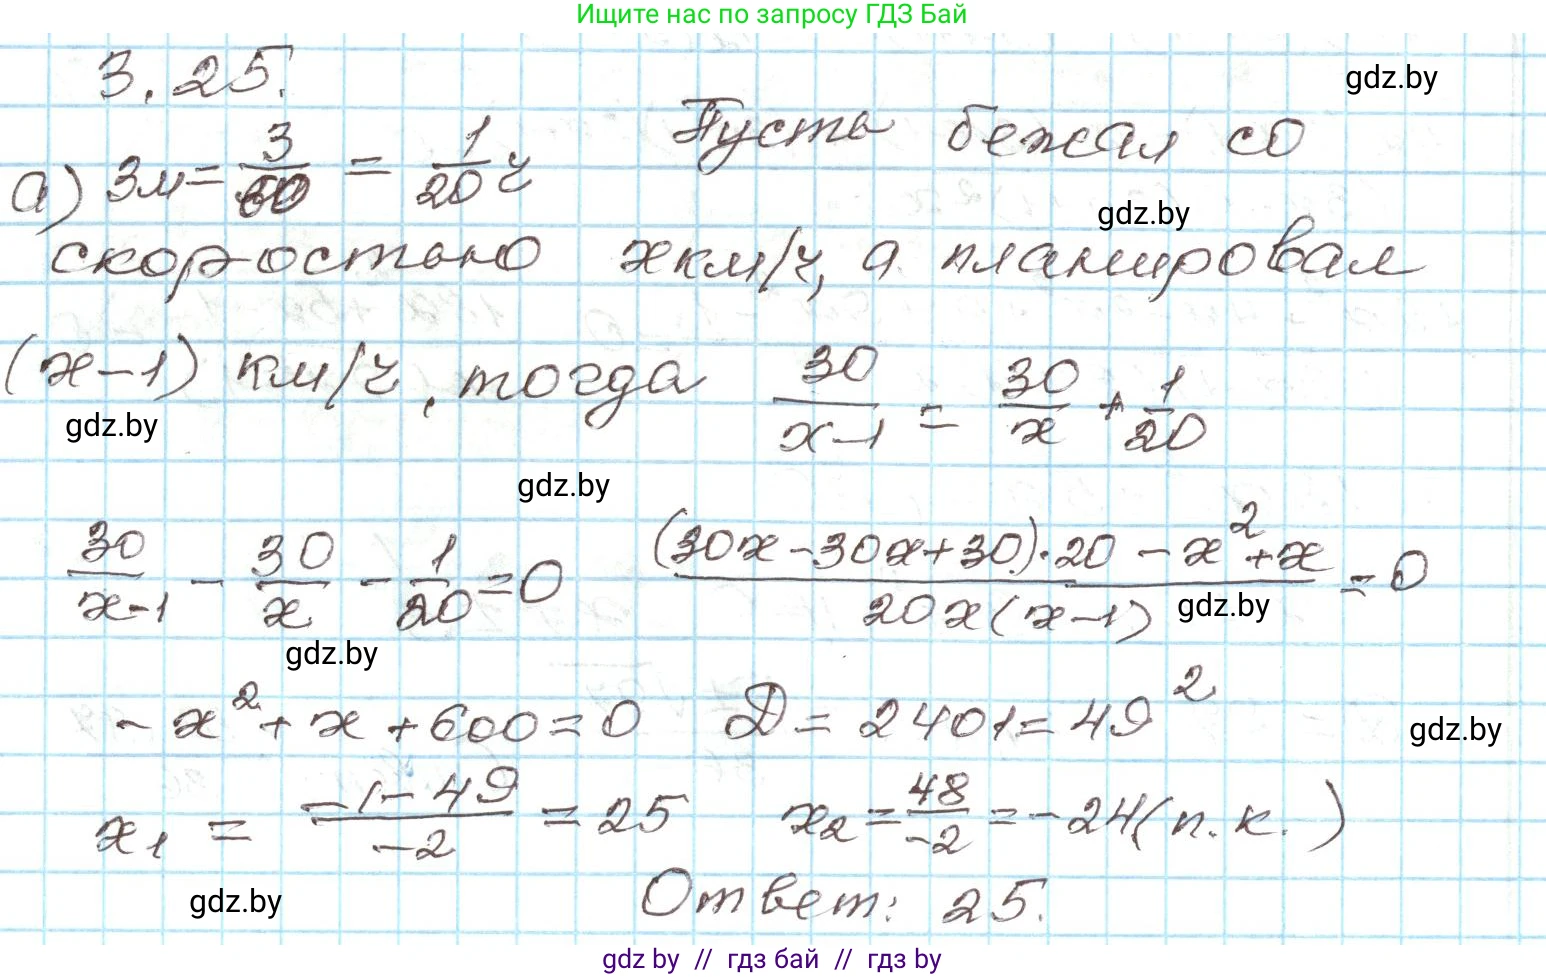 Ищите нас по запросу ГДЗ Бай
3.25.
gdz.by
а) 3м = 3/60 = 1/20 ч Пусть бежал со
gdz.by
скоростью x км/ч, а планировал
(x-1) км/ч, тогда 30/(x-1) = 30/x + 1/20
gdz.by
gdz.by
30/(x-1) - 30/x - 1/20 = 0 ((30x-30x+30)·20 - x²+x)/(20x(x-1)) = 0
gdz.by
gdz.by
-x²+x+600=0 D = 2401 = 49²
gdz.by
x₁ = (-1-49)/(-2) = 25 x₂ = 48/(-2) = -24 (п.к.)
gdz.by
Ответ: 25.
gdz by // гдз бай // гдз by